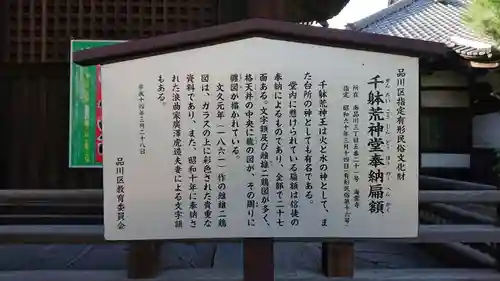 品川区指定有形民俗文化財
千躰荒神堂奉納扁額
所在 南品川三丁目五番二十一号 海雲寺
指定 昭和六十年三月十四日(有形民俗第十六号)
千躰荒神王は火と水の神として、ま
た台所の神としても有名である。
堂内に懸けられている扁額は信徒の
奉納によるものであり、全部で二十七
面ある。文字額及び雌雄二鶏図が多く、
格天井の中央に龍の図が、その周りに
纏図が描かれている。
文久元年(一八六一)作の雌雄二鶏
図は、ガラスの上に彩色された貴重な
資料であり、また、昭和十年に奉納さ
れた浪曲家廣澤虎造夫妻による文字額
もある。
平成十四年三月二十八日
品川区教育委員会